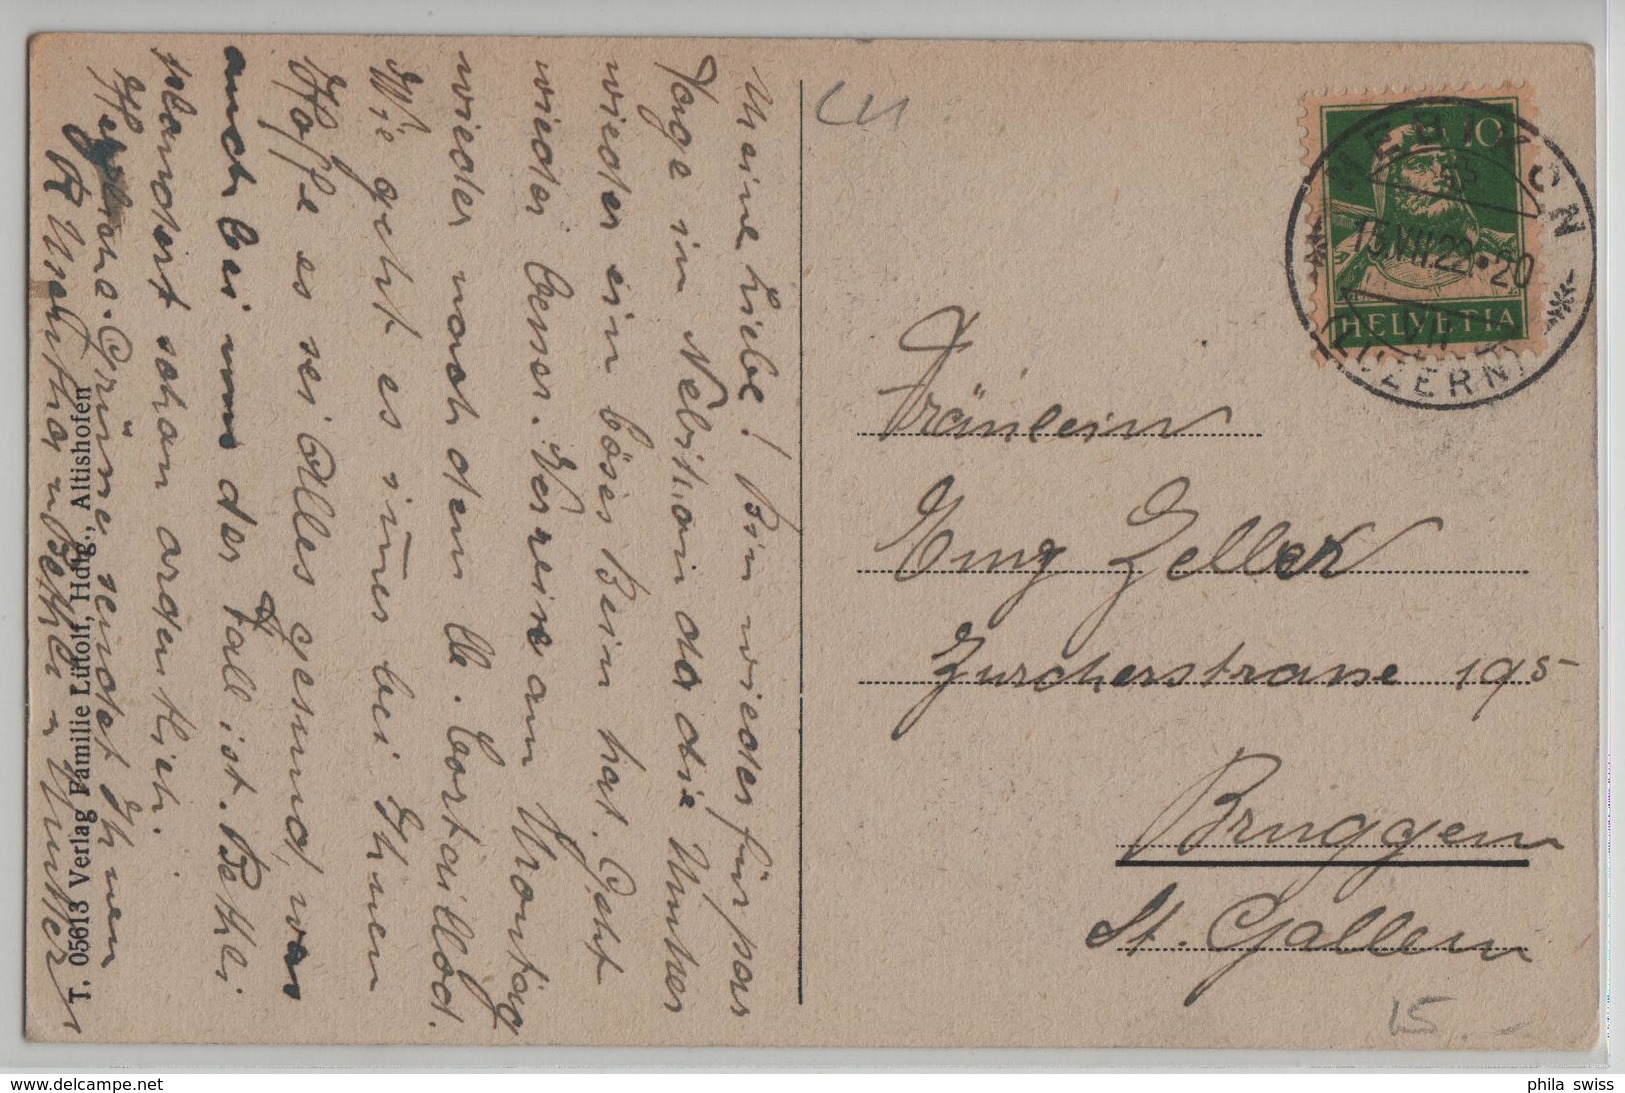 Meine Liebe! Bin wieder für paar
Tage in Nebikon da die Mutter
wieder ein böses Bein hat. Geht
wieder besser. Verreise am Montag
wieder nach dem lb. Cortaillod.
Wie geht es immer bei Ihnen
Hoffe es sei Alles gesund, was
auch bei uns der Fall ist. Bethli
plaudert schon ordentlich.
Herzliche Grüsse sendet Ihnen
u. Bethli u Mutter
T. 05613 Verlag Familie Lütolf, Hdlg., Altishofen
CH
10
HELVETIA
NEBIKON
15.VII.22.20
(LUZERN)
Fräulein
Emy Zeller
Zurcherstrasse 195
Bruggen
St. Gallen
15.-
phila swiss